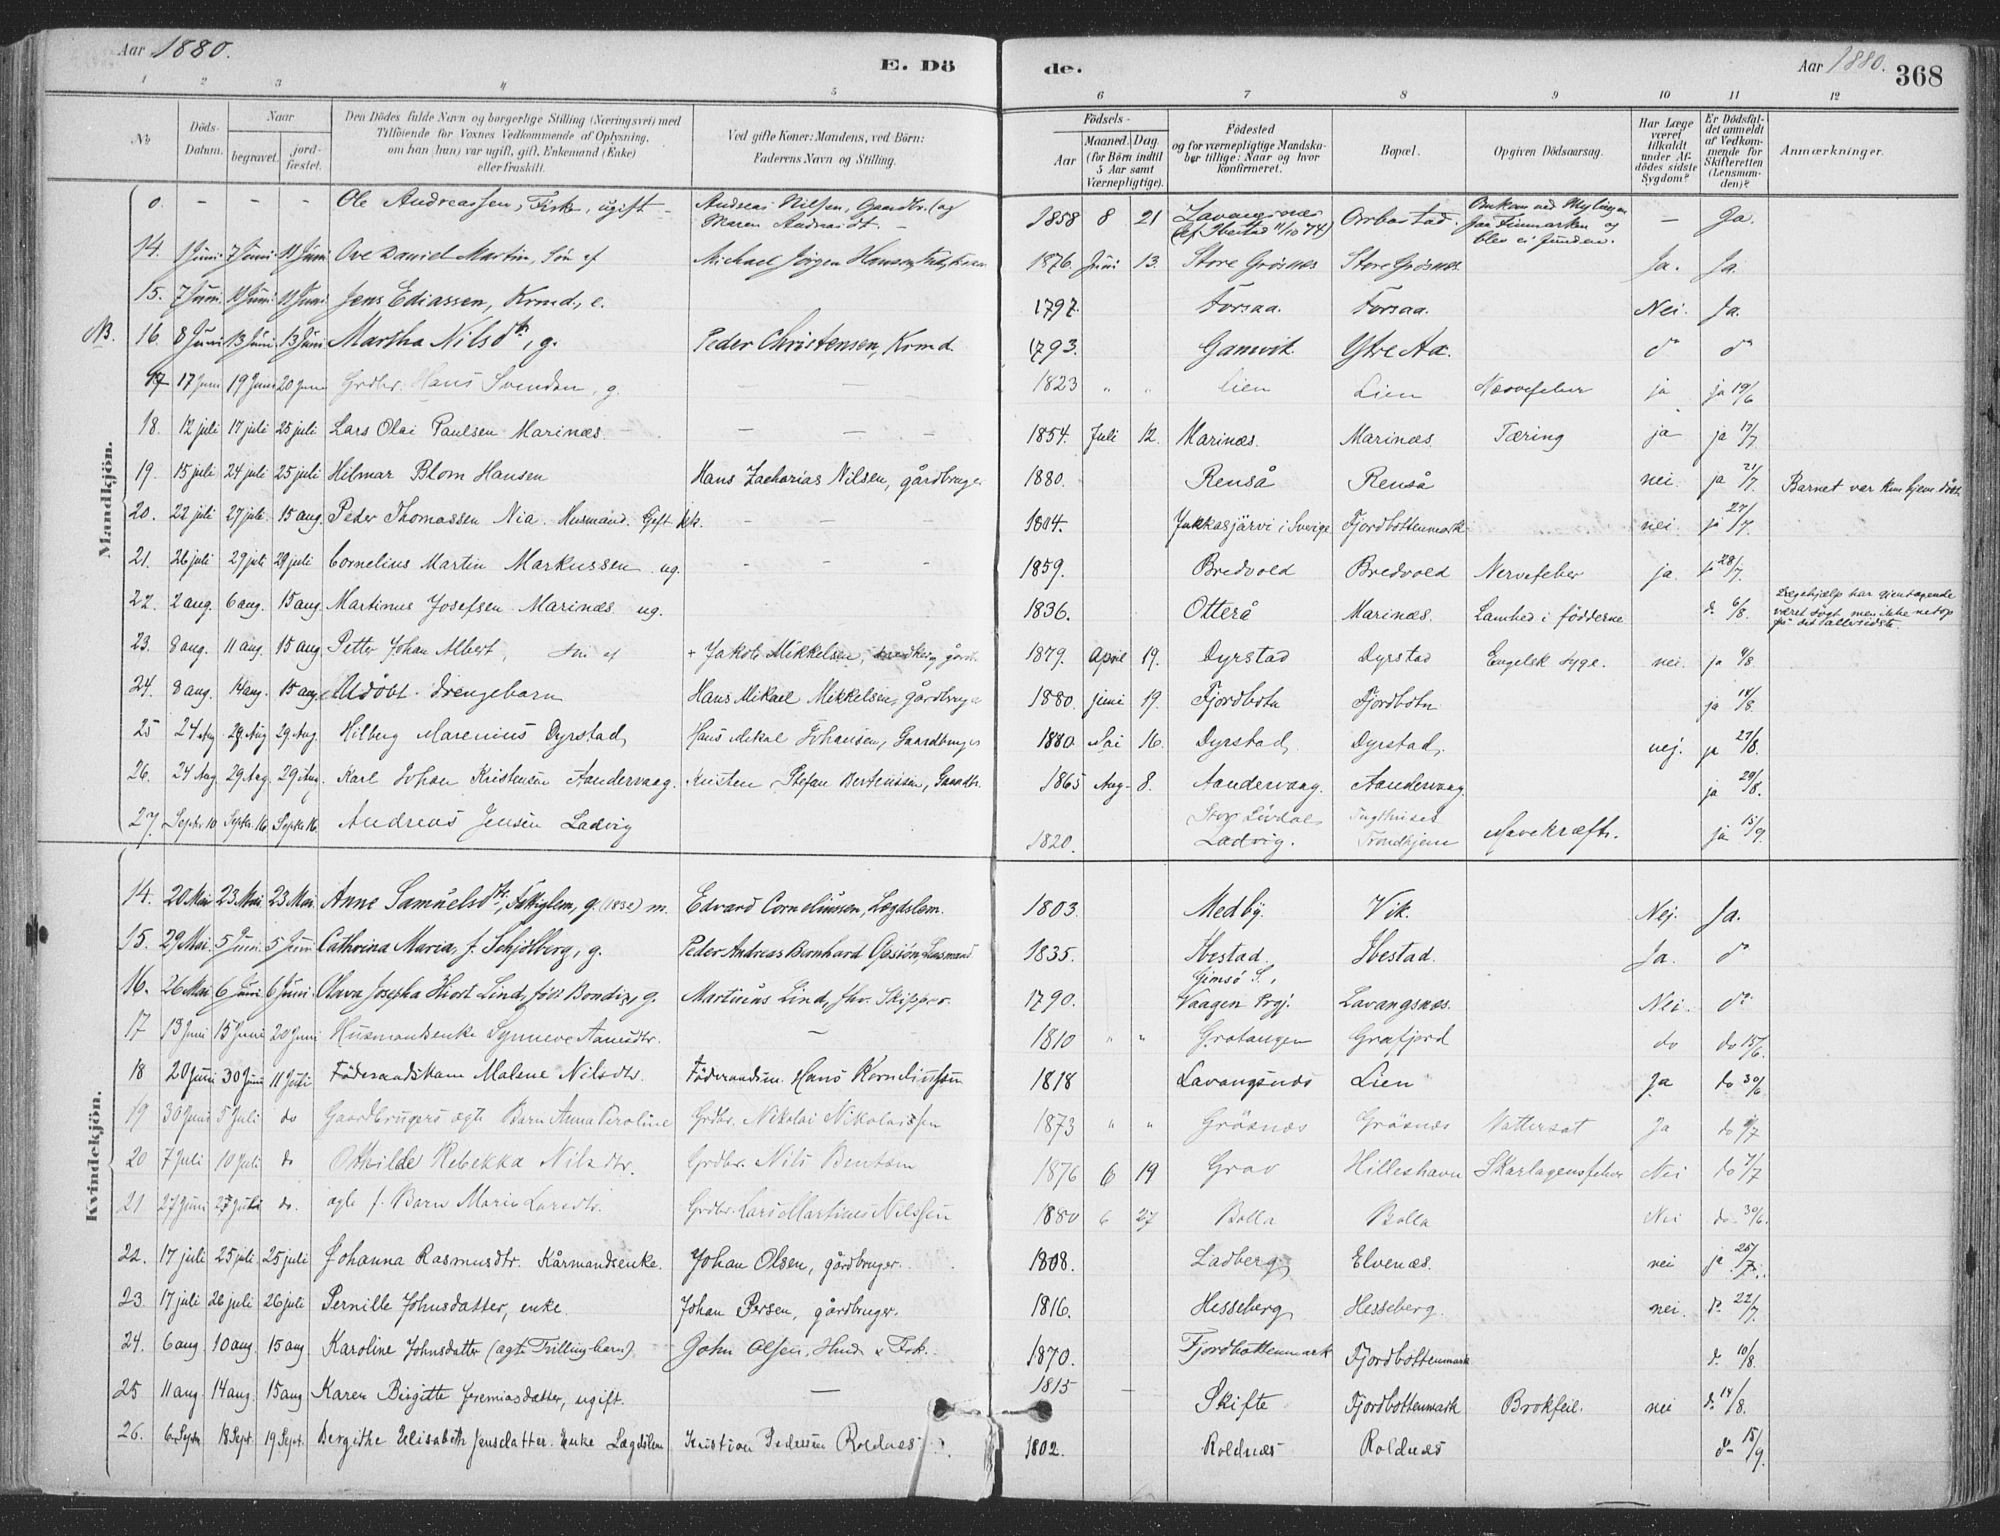 Aar 1880.
E. Dö
de.
Aar 1880.
368
1 2 3 4 5 6 7 8 9 10 11 12
No
Döds-Datum.
Naar
begravet.
jord-fæstet.
Den Dödes fulde Navn og borgerlige Stilling (Næringsvei) med
Tilföiende for Voxnes Vedkommende af Oplysning,
om han (hun) var ugift, gift, Enkemand (Enke)
eller fraskilt.
Ved gifte Koner: Mandens, ved Börn:
Faderens Navn og Stilling.
Födsels-
Aar
Maaned. Dag.
(for Börn indtil
5 Aar samt
Værnepligtige).
Födested
og for værnepligtige Mandska-
ber tillige: Naar og hvor
konfirmeret.
Bopæl.
Opgiven Dödsaarsag.
Har Læge
været
tilkaldt
under Af-
dödes sidste
Sygdom?
Er Dödsfal-
det anmeldt
af Vedkom-
mende for
Skifteretten
(Lensman-
den)?
Anmærkninger.
Mandkjön.
0. - - - Ole Andreassen, Fisker, ugift - Andreas Nilsen, Gaardbr. (og Maren Andersdt. - 1858 8 21 Lavangsnæs (cf. Ibestad 11/10 74) Orbostad. Omkom ved fra Finmarken og blev ei funden. - Ja.
14. 1 Juni 7 Juni 11 Juni Ove Daniel Martin, Søn af Michael Jörgen Hansen, 1876. Juni 13. Store Grøsnes Store Grøsnes Ja. Ja.
15. 7 Juni. 11 Juni 11 Juni. Jens Ediassen, Krmd., e. 1797. Forsaa. Forsaa. Nei. Ja.
NB. 16. 8 Juni 13 Juni 13 Juni Martha Nilsdtr., g. Peder Christensen, Krmd. 1793. Gamvik Ytre Aa. do do
17 17 Juni 19 Juni 20 Juni Grdbr. Hans Svendsen, g. - - 1823 " " Lien Lien Nervefeber ja ja 19/6
18. 12 juli 17 juli 25 juli Lars Olai Paulsen Marinæs. - - - 1854. Juli 12. Marinæs. Marinæs. Tæring ja ja 17/7.
19. 15 juli 24 juli 25 juli Hilmar Blom Hansen Hans Zacharias Nilsen, gårdbruger 1880. Renså Renså nei. ja 21/7. Barnet var kun hjemdöbt.
20. 22 juli 27 juli 15 aug. Peder Thomassen Nia. Husmand. Gift. - - - 1804. Jukkasjärvi i Sverige Fjordbottenmark nei. ja 27/7.
21. 26 juli 29 juli 29 juli Cornelius Martin Markussen ug. - - - 1859. Bredvold Bredvold Nervefeber ja. ja 28/7.
22. 2 aug. 6 aug. 15 aug Martinus Josefsen Marinæs ug. 1836. Otterå Marinæs. Lamhed i födderne do. 6/8. Lægehjælp har gjentagende været sögt, men ikke netop på det sidste.
23. 8 aug. 11 aug. 15 aug Petter Johan Albert, Sön af + Jakob Mikkelsen, 1879. April 19. Dyrstad Dyrstad Engelsk syge. nei. ja 9/8.
24. 8 aug. 14 aug. 15 aug Udöbt drengebarn Hans Mikael Mikkelsen, gårdbruger 1880. juni 19. Fjordbotn Fjordbotn ja 14/8.
25 24 Aug 29 Aug 29 Aug. Hilberg Marenius Dyrstad, Hans Mikal Johansen, Gaardbruger 1880. Mai 16. Dyrstad, Dyrstad, nej. ja 27/8.
26. 24 Aug. 29 Aug. 29 Aug. Karl Johan Kristensen Aandervaag. Kristen Stefan Berteussen, Gaardbr. 1865 Aug. 8. Aandervaag. Aandervaag ja 29/8.
27. Septr. 10 Septr. 16. Septr. 16. Andreas Jensen Ladvig 1820. Stor Lövdal Ladvig. Tugthuset Trondhjem Mavekræft. ja 15/9.
Kvindekjön.
14. 20 Mai 23. Mai. 23 Mai. Anne Samuelsdtr., Fattiglem, g. (1832) m. Edvard Corneliussen, Lægdslem. 1803. Medby. Vik. Nej. Ja.
15. 29 Mai. 5 Juni. 5 Juni Cathrina Maria, f. Schjelberg, g. Peder Andreas Bernhard Gjesiøn, Lensmand 1835. Ibestad. Ibestad. Ja. do
16. 26 Mai 6 Juni 6 Juni. Olava Josepha Hiort Lind, född Bonding, g. Martinus Lind, fhv. Skipper. 1790. Gimsö S., Vaagen Prgj. Lavangsnæs. Nei. do
17 13 Juni 15 Juni 20 Juni Husmandsenke Synneve Aanesdtr. - 1810 " " Gratangen Gratfjord do do 15/6.
18 20 Juni 30 Juni 11 Juli Föderaadskone Malene Nilsdtr. Föderaadsm. Hans Korneliussen 1818 Lavangsnæs Lien Ja do 30/6
19 30 Juni 5 Juli do Gaardbrugers ægte Barn Anna Peroline Grdbr. Nikolai Nikolaissen 1873 " " Grösnes Grösnes Ja do /7
20 7 Juli 10 Juli do Othilde Rebekka Nilsdtr. Grdbr. Nils Bentsen 1876 6 19 Grav Hilleshavn Skarlagensfeber Nei do 7/7
21 27 Juni 27 Juli do. ægte f. Barn Marie Larsdtr. Grdbr. Lars Martines Nilssen 1880 6 27 Bolla Bolla Nei do 30/6.
22. 17 juli 25 juli 25 juli Johanna Rasmusdtr. Kårmandsenke. Johan Olsen, gårdbruger. 1808. Ladberg Elvenæs. nei ja 25/7.
23. 17 juli 26 juli 26 juli Pernille Johnsdatter, enke. Johan Persen, gårdbruger. 1816. Hesseberg Hesseberg. nei. do. 22/7.
24. 6 aug 10 aug 15 aug Karoline Johnsdatter (ægte Tvillingbarn) John Olsen, Husm. & Fsk. 1870. Fjordbottenmark Fjordbottenmark do. 10/8.
25 11 aug. 14 aug. 15 aug Karen Birgitte Jeremiasdatter, ugift. - 1815 - Skifte Fjordbottenmark Brokfeil. nei do 14/8.
26. 6 Septr 18 Sept. 19 Sept. Bergithe Elisabeth Jensdatter. Enke Lægdslem Kristian Pedersen Roldnæs 1802. Roldnæs Roldnæs do 15/9.